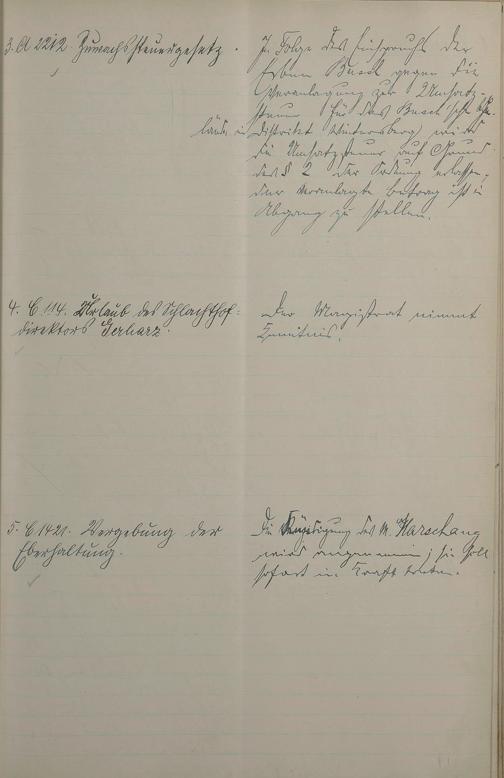 3. A 2212. Zuwachssteuergesetz.
In Folge des Einspruchs der
Erben Busch gegen die
Veranlagung zur Umsatz-
steuer für das Busch'sche
Distrikt Wintersberg) wird
die Umsatzsteuer auf Grund
des § 2 der Ordnung erlassen,
der veranlagte Betrag ist in
Abgang zu stellen.
4. C 114. Urlaub des Schlachthof-
direktors Gerharz.
Der Magistrat nimmt
Kenntnis.
5. C 1421. Vergebung der
Eberhaltung.
Die Kündigung des M. Marschang
wird angenommen; sie soll
sofort in Kraft treten.